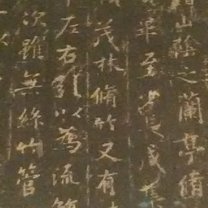 山陰之蘭亭脩
畢至少長咸集
茂林脩竹又有
左右引以為流觴
次雖無絲竹管